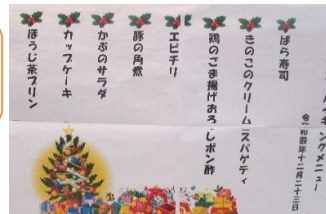 キングメニュー
令和四年十二月二十三日
ばら寿司
きのこのクリームスパゲティ
鶏のごま揚げおろしポン酢
エビチリ
豚の角煮
かぶのサラダ
カップケーキ
ほうじ茶プリン